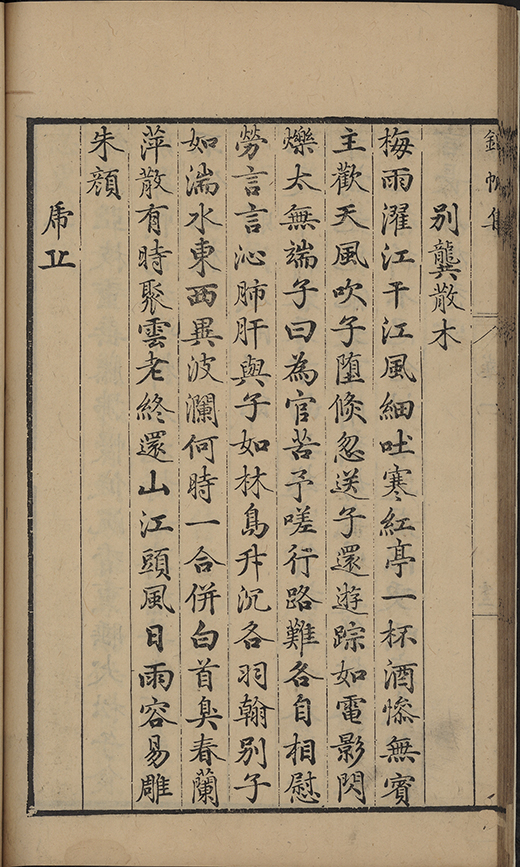 別龔散木
梅雨濯江干江風細吐寒紅亭一杯酒慘無賓
主歡天風吹子墮倐忽送子還遊踪如電影閃
爍太無端子曰為官苦予嗟行路難各自相慰
勞言言沁肺肝與子如林鳥升沉各羽翰別子
如湍水東西異波瀾何時一合併白首臭春蘭
萍散有時聚雲老終還山江頭風日雨容易雕
朱顔
乕丘